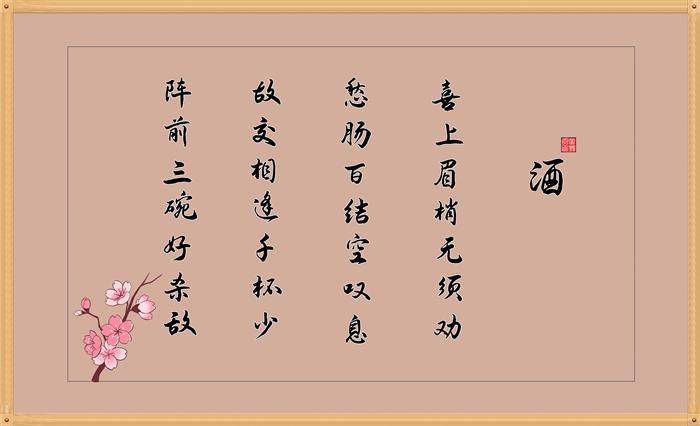 酒
喜上眉梢无须劝
愁肠百结空叹息
故交相逢千杯少
阵前三碗好杀敌